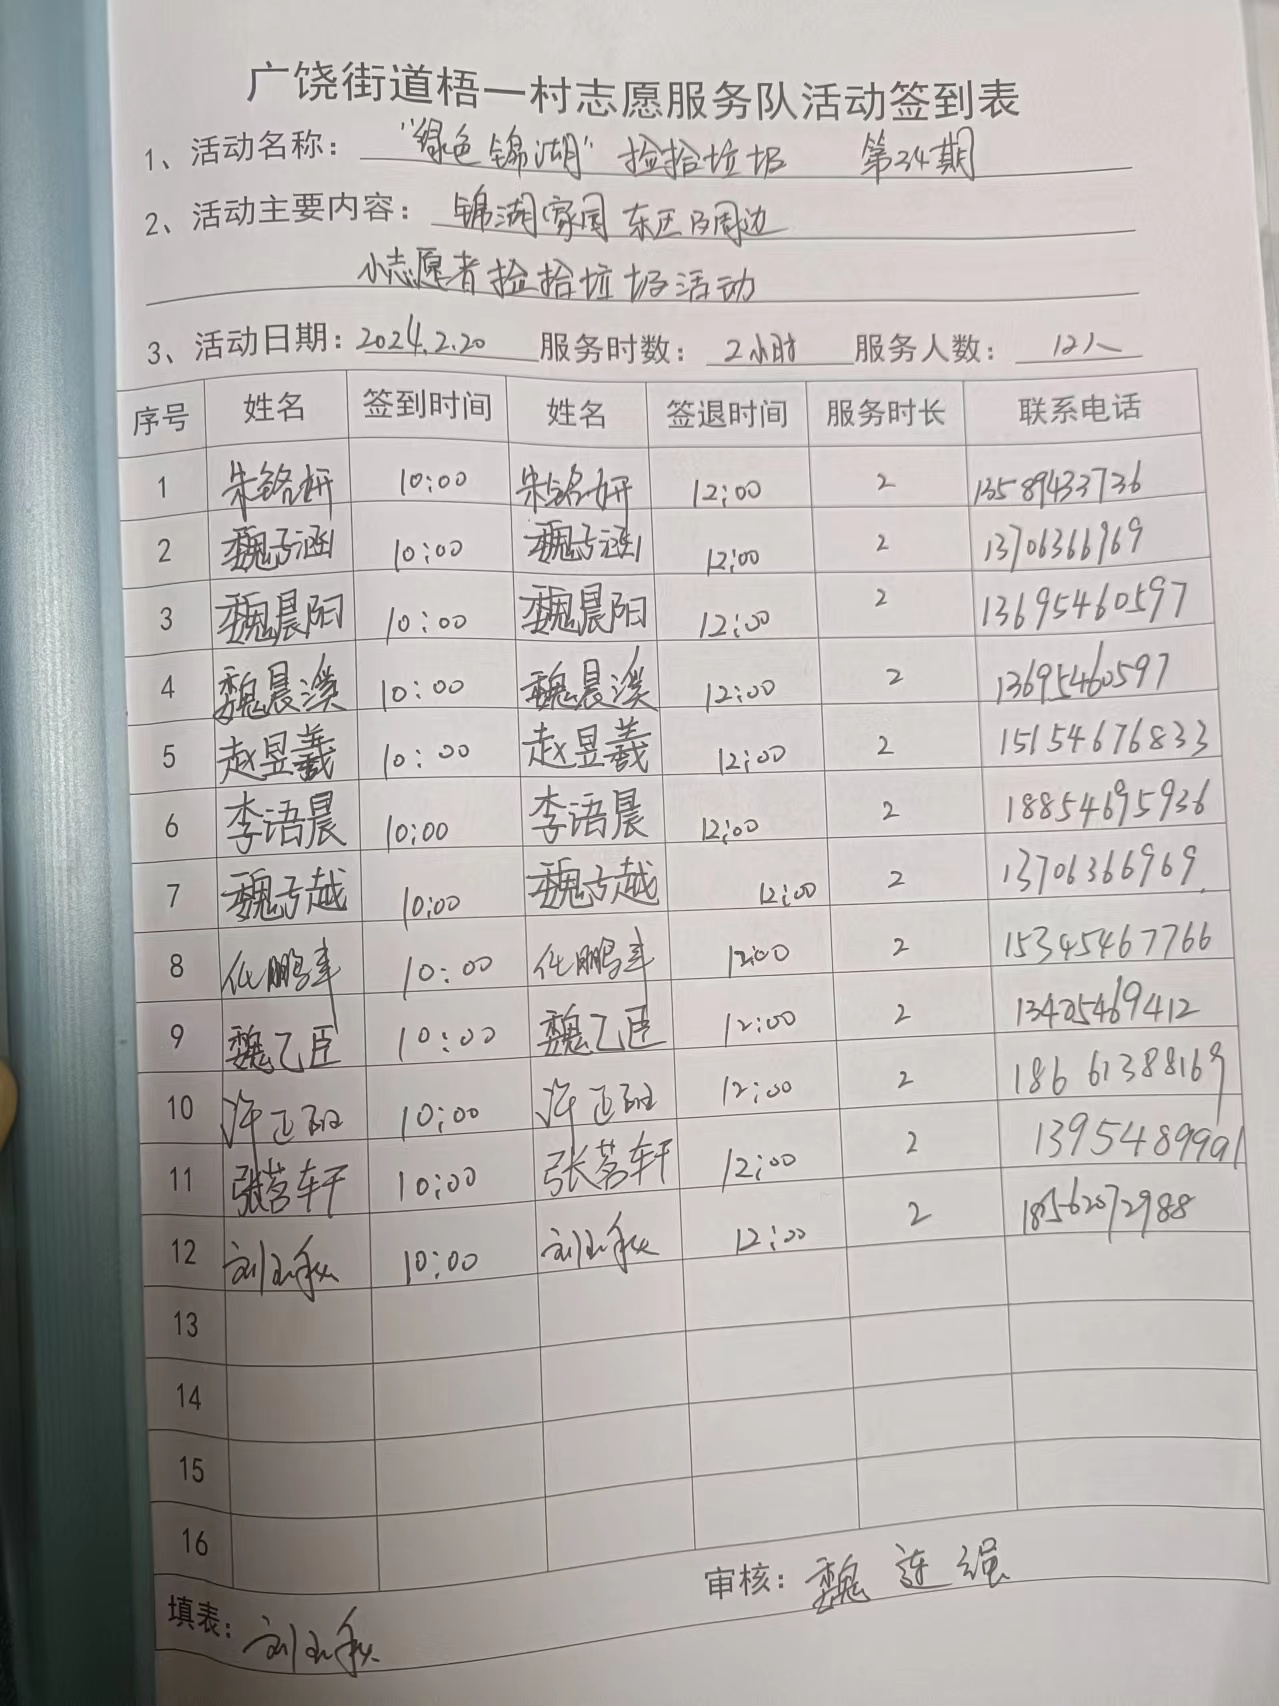 广饶街道梧一村志愿服务队活动签到表
1、活动名称：“绿色锦湖”捡拾垃圾 第34期
2、活动主要内容：锦湖家园东区及周边
小志愿者捡拾垃圾活动
3、活动日期：2024.2.20 服务时数：2小时 服务人数：12人
序号 姓名 签到时间 姓名 签退时间 服务时长 联系电话
1 朱铭妍 10:00 朱铭妍 12:00 2 13589433736
2 魏子涵 10:00 魏子涵 12:00 2 13706366969
3 魏晨阳 10:00 魏晨阳 12:00 2 13695460597
4 魏晨溪 10:00 魏晨溪 12:00 2 13695460597
5 赵昱羲 10:00 赵昱羲 12:00 2 15154676833
6 李语晨 10:00 李语晨 12:00 2 18854695936
7 魏子越 10:00 魏子越 12:00 2 13706366969
8 鹏 10:00 鹏 12:00 2 15345467766
9 魏乙臣 10:00 魏乙臣 12:00 2 13405469412
10 许 10:00 许 12:00 2 18661388169
11 张茗轩 10:00 张茗轩 12:00 2 1395489991
12 刘 10:00 刘 12:00 2 18562072988
13
14
15
16
填表：刘 审核：魏连强